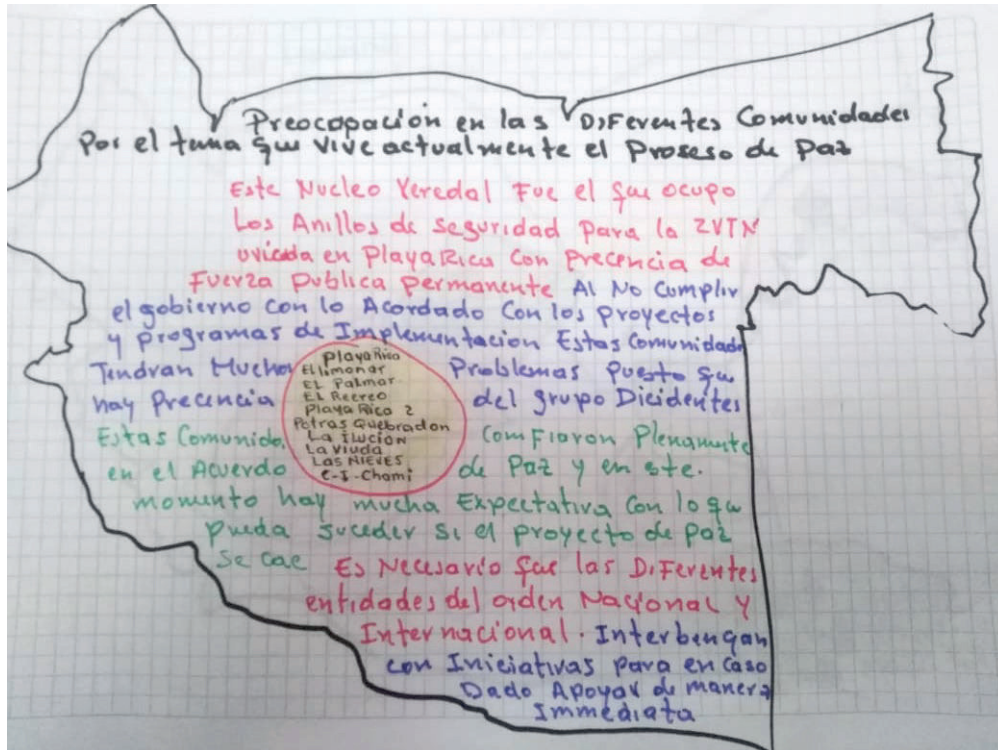 Preocopación en las Diferentes Comunidades
Por el tema que vive actualmente el Proseso de Paz
Este Nucleo Veredal Fue el que ocupo
Los Anillos de seguridad Para la ZVTN
uvicada en Playa Rica Con Precencia de
Fuerza publica permanente Al No Cumplir
el gobierno con lo Acordado Con los proyectos
y programas de Implementacion Estas Comunidade
Tendran Muchos Problemas Puesto que
hay Precencia del grupo Dicidentes
Estas Comunida. Comfiaron Plenamente
en el Acuerdo de Paz y en este.
momento hay mucha Expectativa Con lo que
pueda suceder si el proyecto de paz
se cae Es Necesario que las Diferentes
entidades del orden Nacional Y
Internacional. Interbengan
con Iniciativas para en Caso
Dado Apoyar de manera
Immediata
Playa Rica
El limonar
EL Palmar
EL Recreo
Playa Rica 2
Potras Quebradon
La ILUCION
La Viuda
Las NIEVES
C-I-Chami